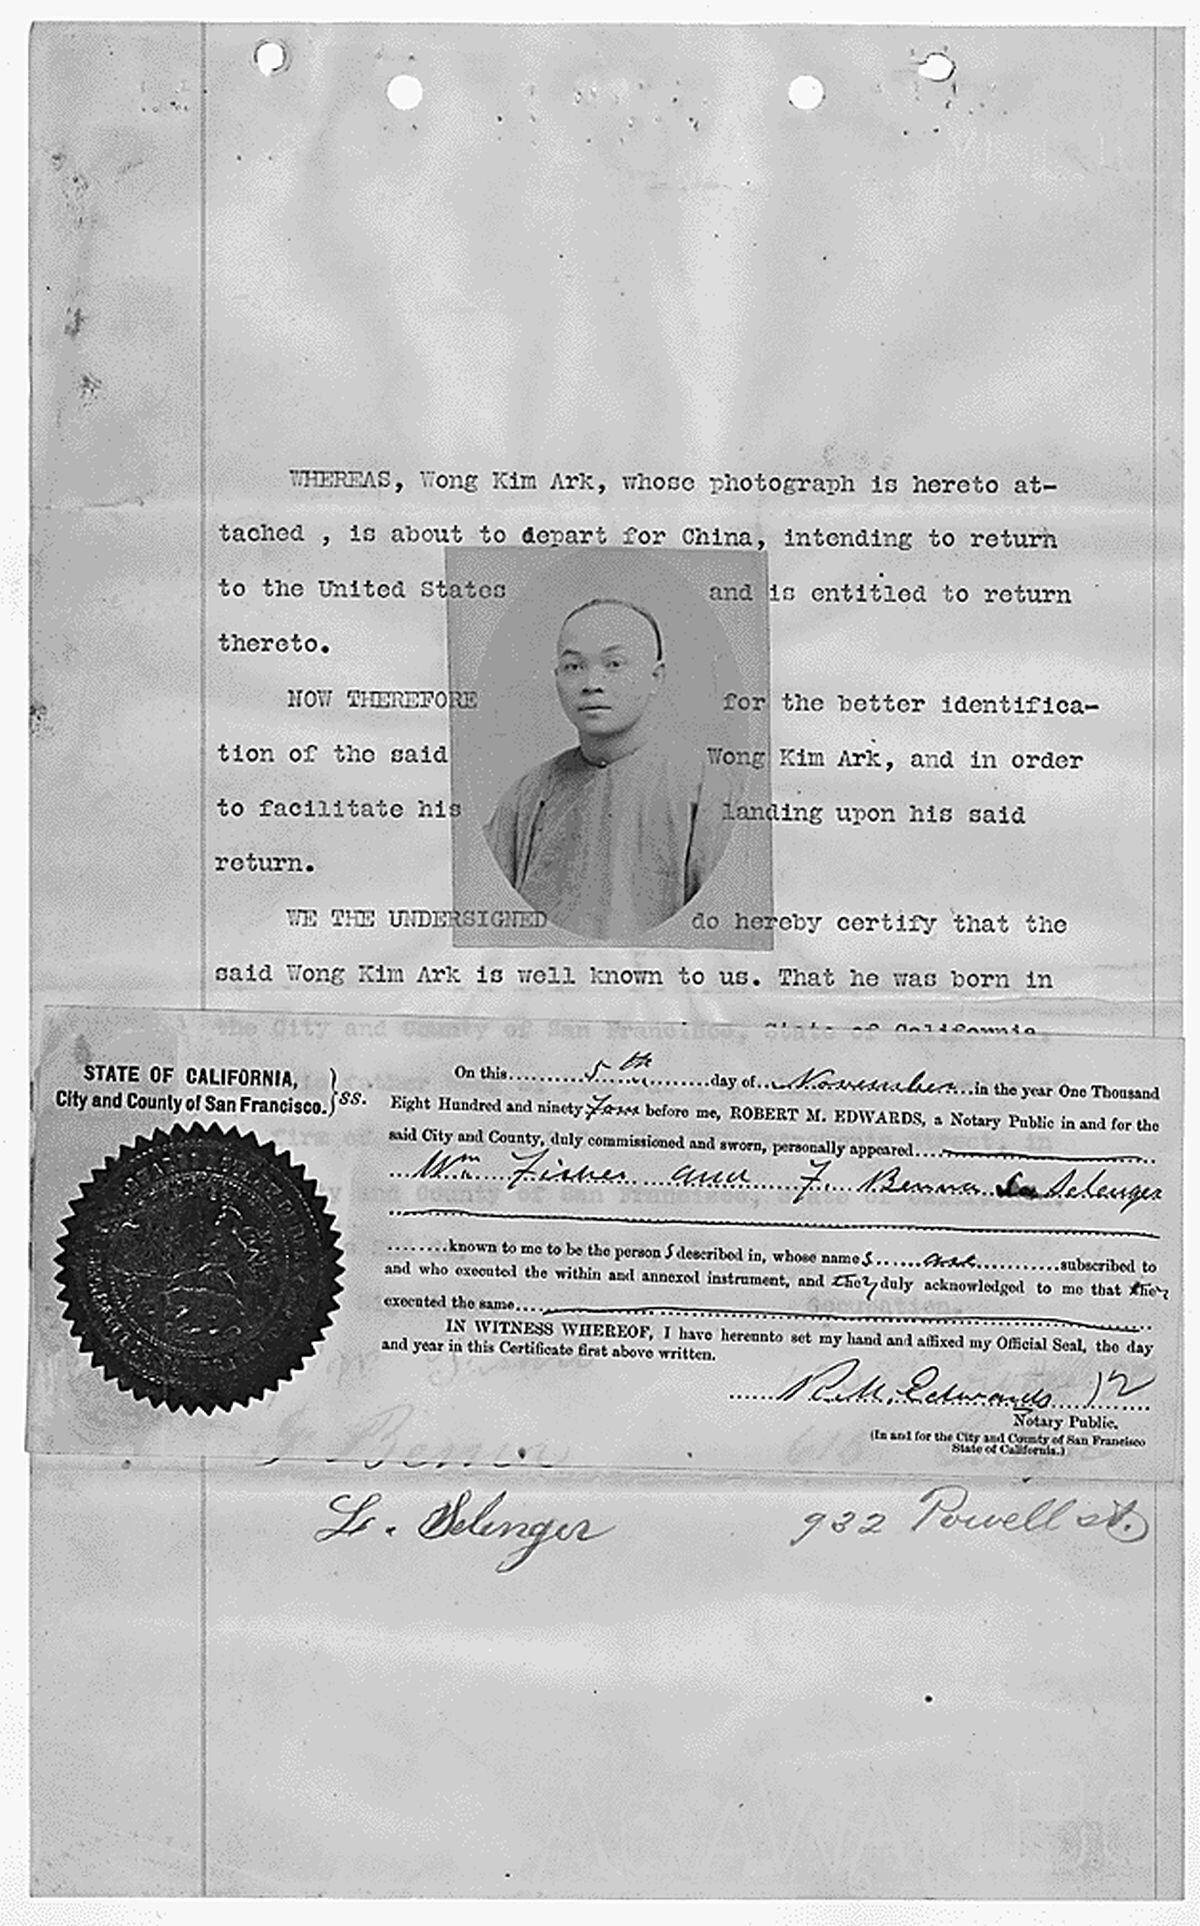 WHEREAS, Wong Kim Ark, whose photograph is hereto at-
tached , is about to depart for China, intending to return
to the United States and is entitled to return
thereto.
NOW THEREFORE for the better identifica-
tion of the said Wong Kim Ark, and in order
to facilitate his landing upon his said
return.
WE THE UNDERSIGNED do hereby certify that the
said Wong Kim Ark is well known to us. That he was born in
the City and County of San Francisco, State of California,
STATE OF CALIFORNIA,
City and County of San Francisco. } ss.
On this 5th day of November in the year One Thousand
Eight Hundred and ninety four before me, ROBERT M. EDWARDS, a Notary Public in and for the
said City and County, duly commissioned and sworn, personally appeared
Wm Fisher and F. Benna La Selenger
known to me to be the person s described in, whose name s are subscribed to
and who executed the within and annexed instrument, and they duly acknowledged to me that they
executed the same
Occupation.
IN WITNESS WHEREOF, I have hereunto set my hand and affixed my Official Seal, the day
and year in this Certificate first above written.
R. M. Edwards
Notary Public.
(In and for the City and County of San Francisco
State of California.)
L. Selenger 932 Powell st.